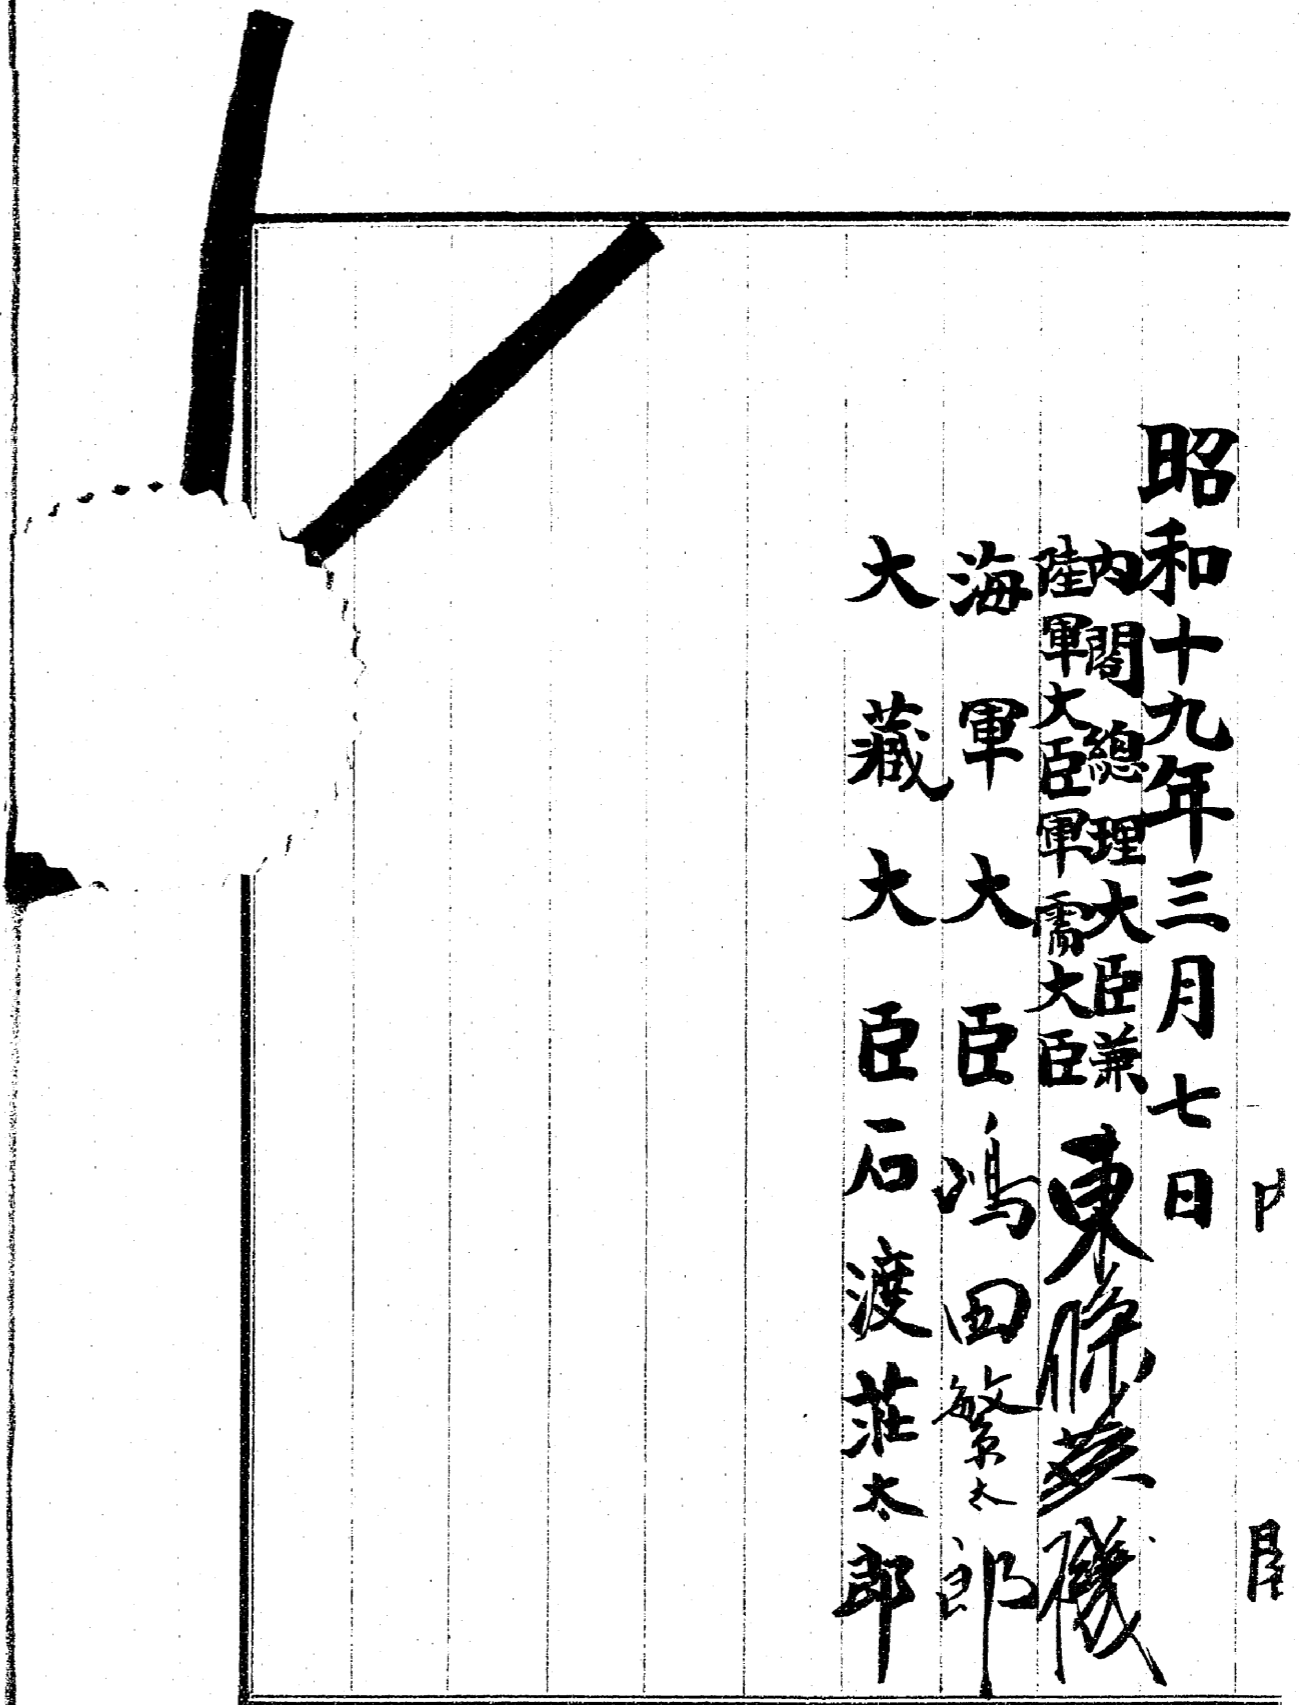 昭和十九年三月七日
內閣總理大臣兼
陸軍大臣軍需大臣 東條英機
海軍大臣 嶋田繁太郎
大藏大臣 石渡莊太郎